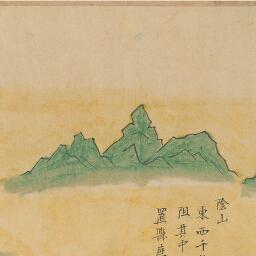 陰山
東西千
阻其中
置縣